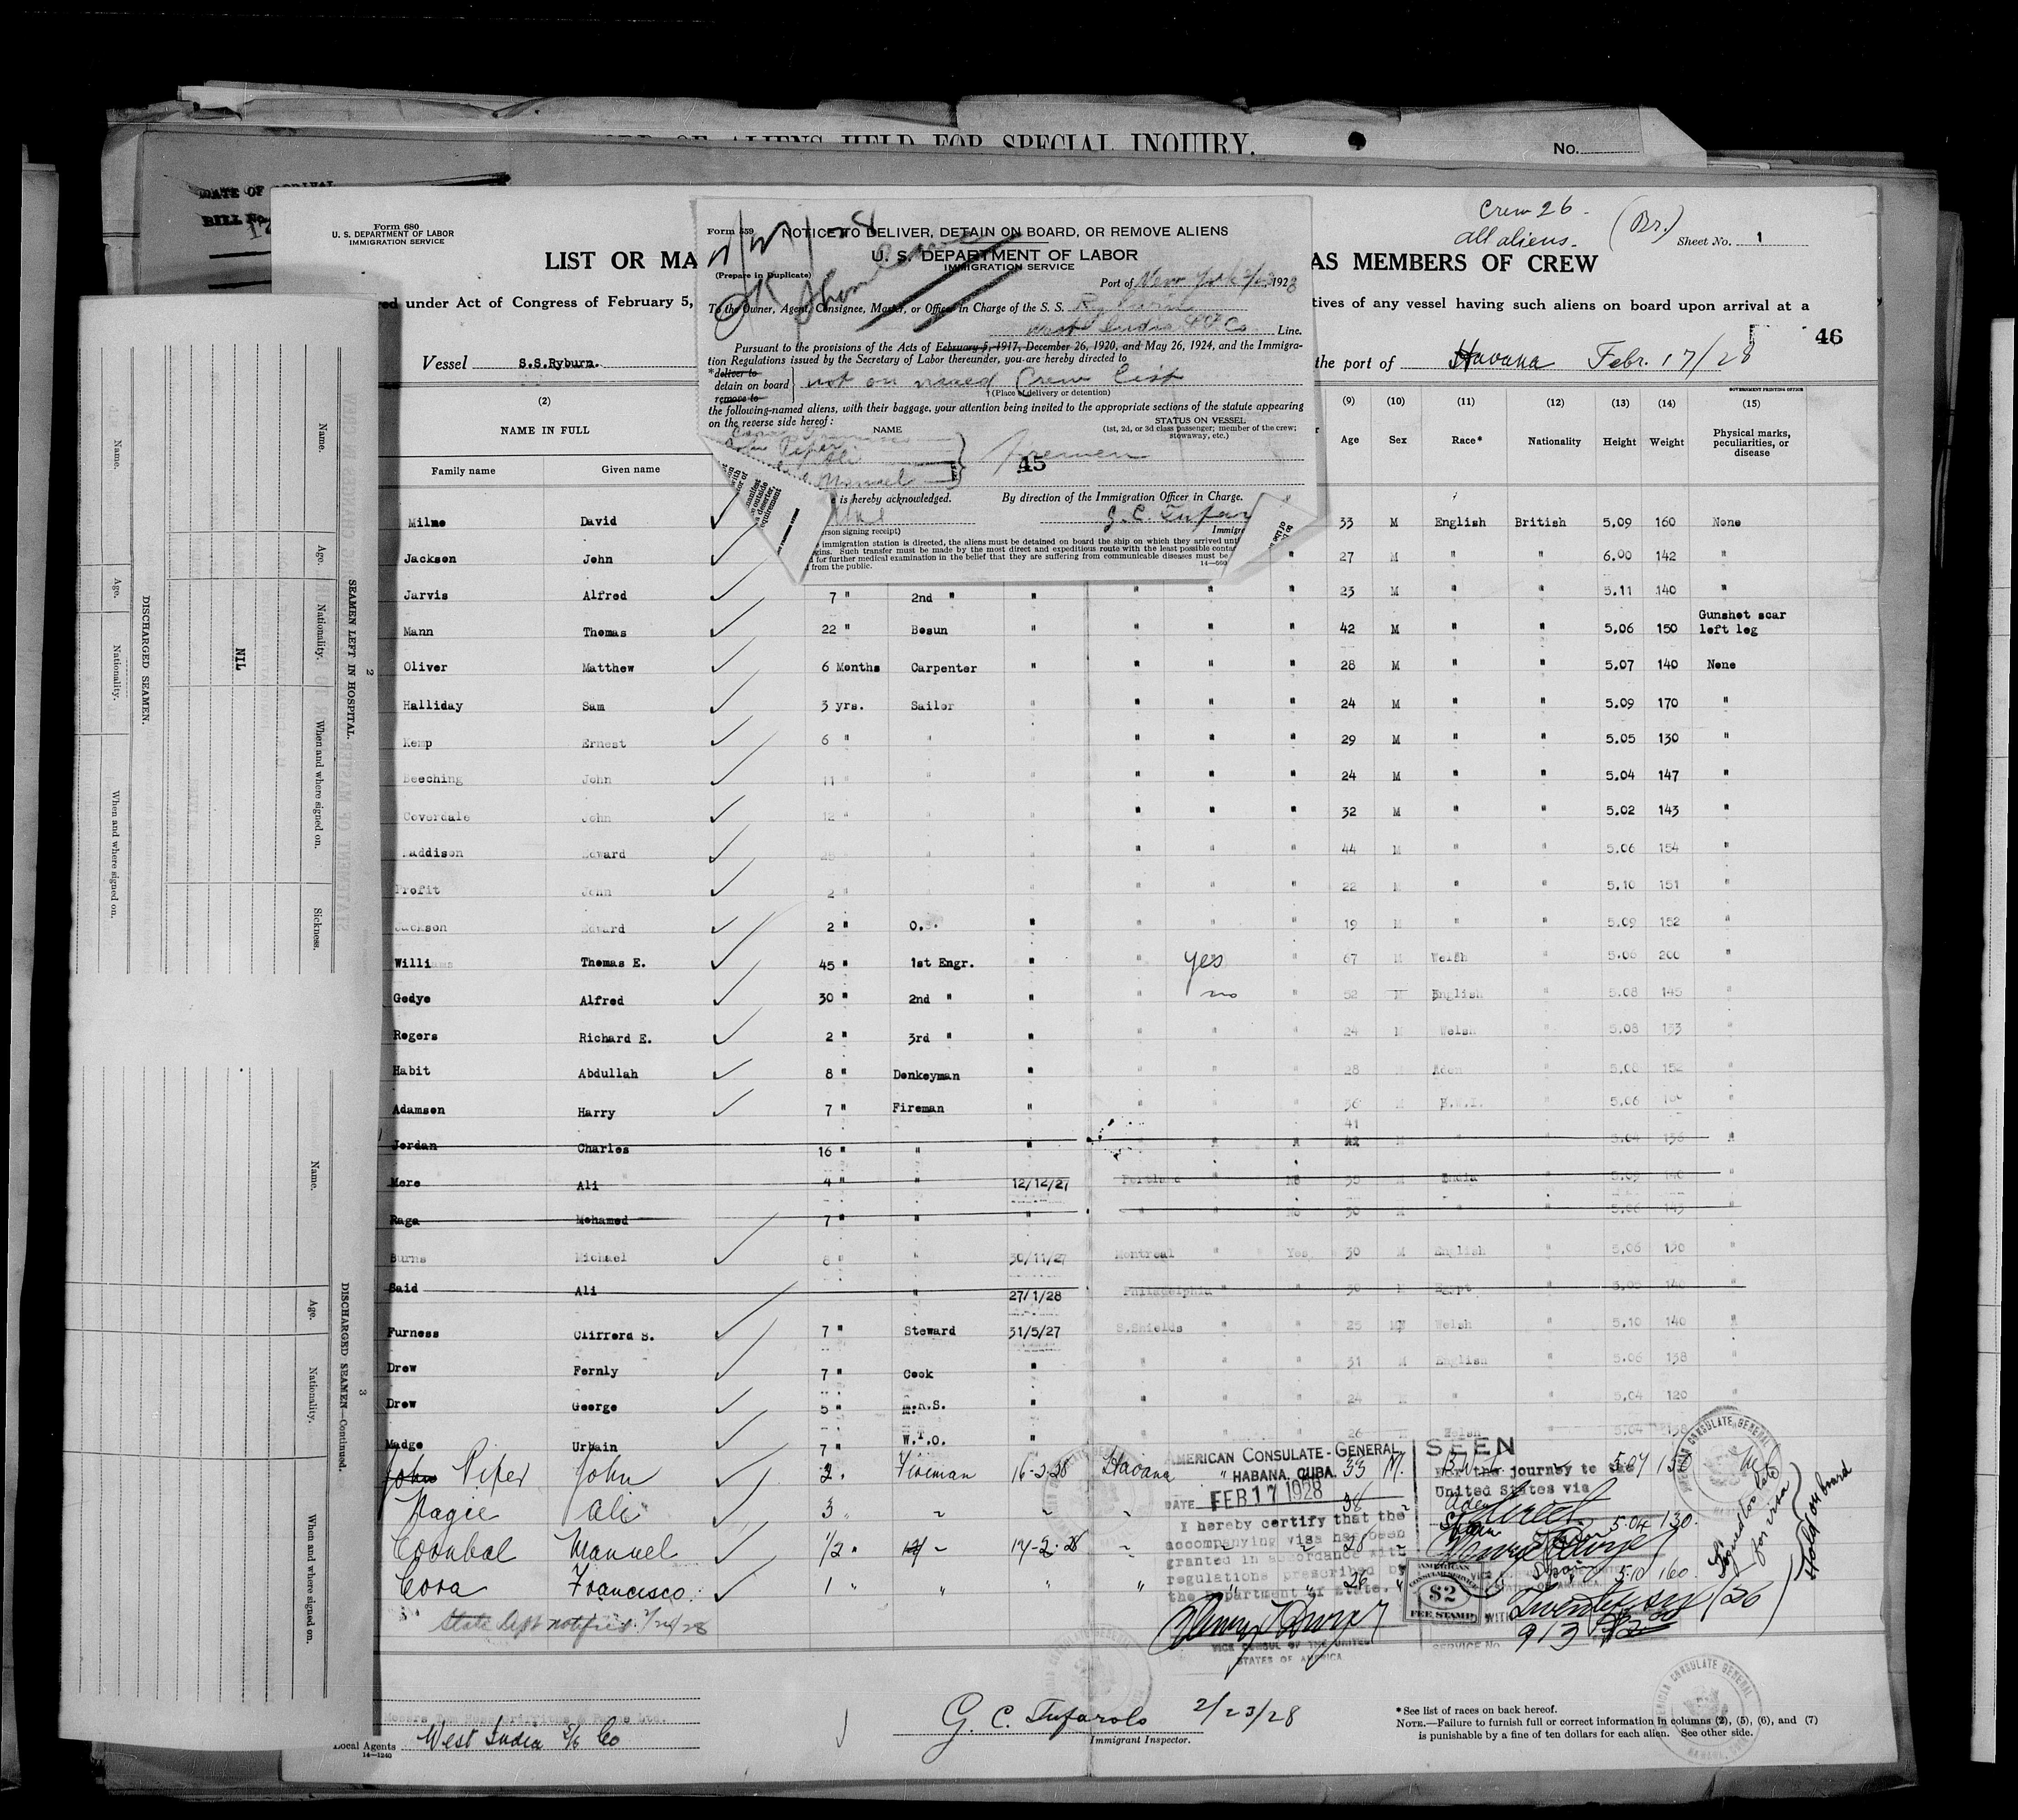 OF ALIENS HELD FOR SPECIAL INQUIRY.
No.
DATE OF ARRIVAL
Form 680
U. S. DEPARTMENT OF LABOR
IMMIGRATION SERVICE
Crew 26.
All aliens.
(Br.)
Sheet No. 1
LIST OR MA
AS MEMBERS OF CREW
ed under Act of Congress of February 5,
tives of any vessel having such aliens on board upon arrival at a
46
Vessel S.S.Ryburn.
the port of Havana Febr. 17/28
Form 659
NOTICE TO DELIVER, DETAIN ON BOARD, OR REMOVE ALIENS
U. S. DEPARTMENT OF LABOR
IMMIGRATION SERVICE
(Prepare in Duplicate)
OK
Port of New York 1928
To the Owner, Agent, Consignee, Master, or Officer in Charge of the S. S.
West India Co. Line.
Pursuant to the provisions of the Acts of February 5, 1917, December 26, 1920, and May 26, 1924, and the Immigra-
tion Regulations issued by the Secretary of Labor thereunder, you are hereby directed to
*deliver to
detain on board
remove to
not on visaed Crew list
†(Place of delivery or detention)
the following-named aliens, with their baggage, your attention being invited to the appropriate sections of the statute appearing
on the reverse side hereof:
NAME
STATUS ON VESSEL
(1st, 2d, or 3d class passenger; member of the crew;
stowaway, etc.)
John Piper
Ali
Manuel
Firemen
45
e is hereby acknowledged.
By direction of the Immigration Officer in Charge.
G. C. Tufar
erson signing receipt)
Immigr
immigration station is directed, the aliens must be detained on board the ship on which they arrived unt
gins. Such transfer must be made by the most direct and expeditious route with the least possible conta
d for further medical examination in the belief that they are suffering from communicable diseases must be
from the public.
GOVERNMENT PRINTING OFFICE
(2) (9) (10) (11) (12) (13) (14) (15)
NAME IN FULL Age Sex Race* Nationality Height Weight Physical marks, peculiarities, or disease
Family name Given name
Milne David 33 M English British 5.09 160 None
Jackson John " 27 M " " 6.00 142 "
Jarvis Alfred 7 " 2nd " " " " " 23 M " " 5.11 140 "
Mann Thomas 22 " Bosun " " " " 42 M " " 5.06 150 Gunshot scar left leg
Oliver Matthew 6 Months Carpenter " " " " 28 M " " 5.07 140 None
Halliday Sam 3 yrs. Sailor " " " " 24 M " " 5.09 170 "
Kemp Ernest 6 " " " " " " 29 M " " 5.05 130 "
Beeching John 11 " " " " " " 24 M " " 5.04 147 "
Coverdale John 12 " " " " " " 32 M " " 5.02 143 "
addison Edward " " " " " 44 M " " 5.06 154 "
Profit John 2 " " " " " " 22 M " " 5.10 151 "
Jackson Edward 2 " O.S. " " " " 19 M " " 5.09 152 "
Williams Thomas E. 45 " 1st Engr. " " yes " 67 M Welsh " 5.06 200 "
Gedye Alfred 30 " 2nd " " " no " 52 M English " 5.08 145 "
Rogers Richard E. 2 " 3rd " " " " " 24 M Welsh " 5.08 153 "
Habit Abdullah 8 " Donkeyman " " " " 28 M Aden " 5.08 152 "
Adamson Harry 7 " Fireman " " " " 36 M B.W.I. " 5.06 "
Jordan Charles 16 " " " " " 41 42 M " " 5.04 156 "
Mere Ali 4 " " 12/12/27 Portland " No 38 M India " 5.09 140 "
Raga Mohamed 7 " " " " " No 30 M " " 5.06 143 "
Burns Michael 8 " " 30/11/27 Montreal " Yes 30 M English " 5.06 150 "
Said Ali " 27/1/28 Philadelphia " " 38 M Egypt " 5.05 140 "
Furness Clifford S. 7 " Steward 31/5/27 S.Shields " " 25 M Welsh " 5.10 140 "
Drew Fernly 7 " Cook " " " " 31 M English " 5.06 138 "
Drew George 5 " M.R.S. " " " " 24 M " " 5.04 120 "
Madge Urbain 7 " W.T.O. " 26 Welsh " 5.04 "
John Piper John 2 " Fireman 16-2-28 Havana " 33 M. B.W.I. 5.07
Ali 3 " " " 38 Aden 5.04 130
Manuel 1/2 " " 17-2-28 " 28 Spain
Cora Francisco 1 " " " " 26 " Spain 5.10 160
State Dept notified. 2/24/28
AMERICAN CONSULATE-GENERAL
HABANA, CUBA.
DATE FEB 17 1928
I hereby certify that the
accompanying visa has been
granted in accordance with
regulations prescribed by
the Department of State.
VICE CONSUL OF THE UNITED
STATES OF AMERICA
SEEN
For the journey to the
United States via
AMERICAN CONSULAR SERVICE
$2
FEE STAMP
WITH Twenty six (26)
SERVICE No. 913
AMERICAN CONSULATE GENERAL
Signed too late
for visa
Hold on board
Local Agents West India S/S Co
14—1240
G. C. Tufarolo 2/23/28
Immigrant Inspector.
* See list of races on back hereof.
NOTE.—Failure to furnish full or correct information in columns (2), (5), (6), and (7)
is punishable by a fine of ten dollars for each alien. See other side.
SEAMEN LEFT IN HOSPITAL.
2
Name. Age. Nationality. When and where signed on. Sickness.
NIL
DISCHARGED SEAMEN.
Name. Age. Nationality. When and where signed on.
DISCHARGED SEAMEN—Continued.
3
Name. Age. Nationality. When and where signed on.